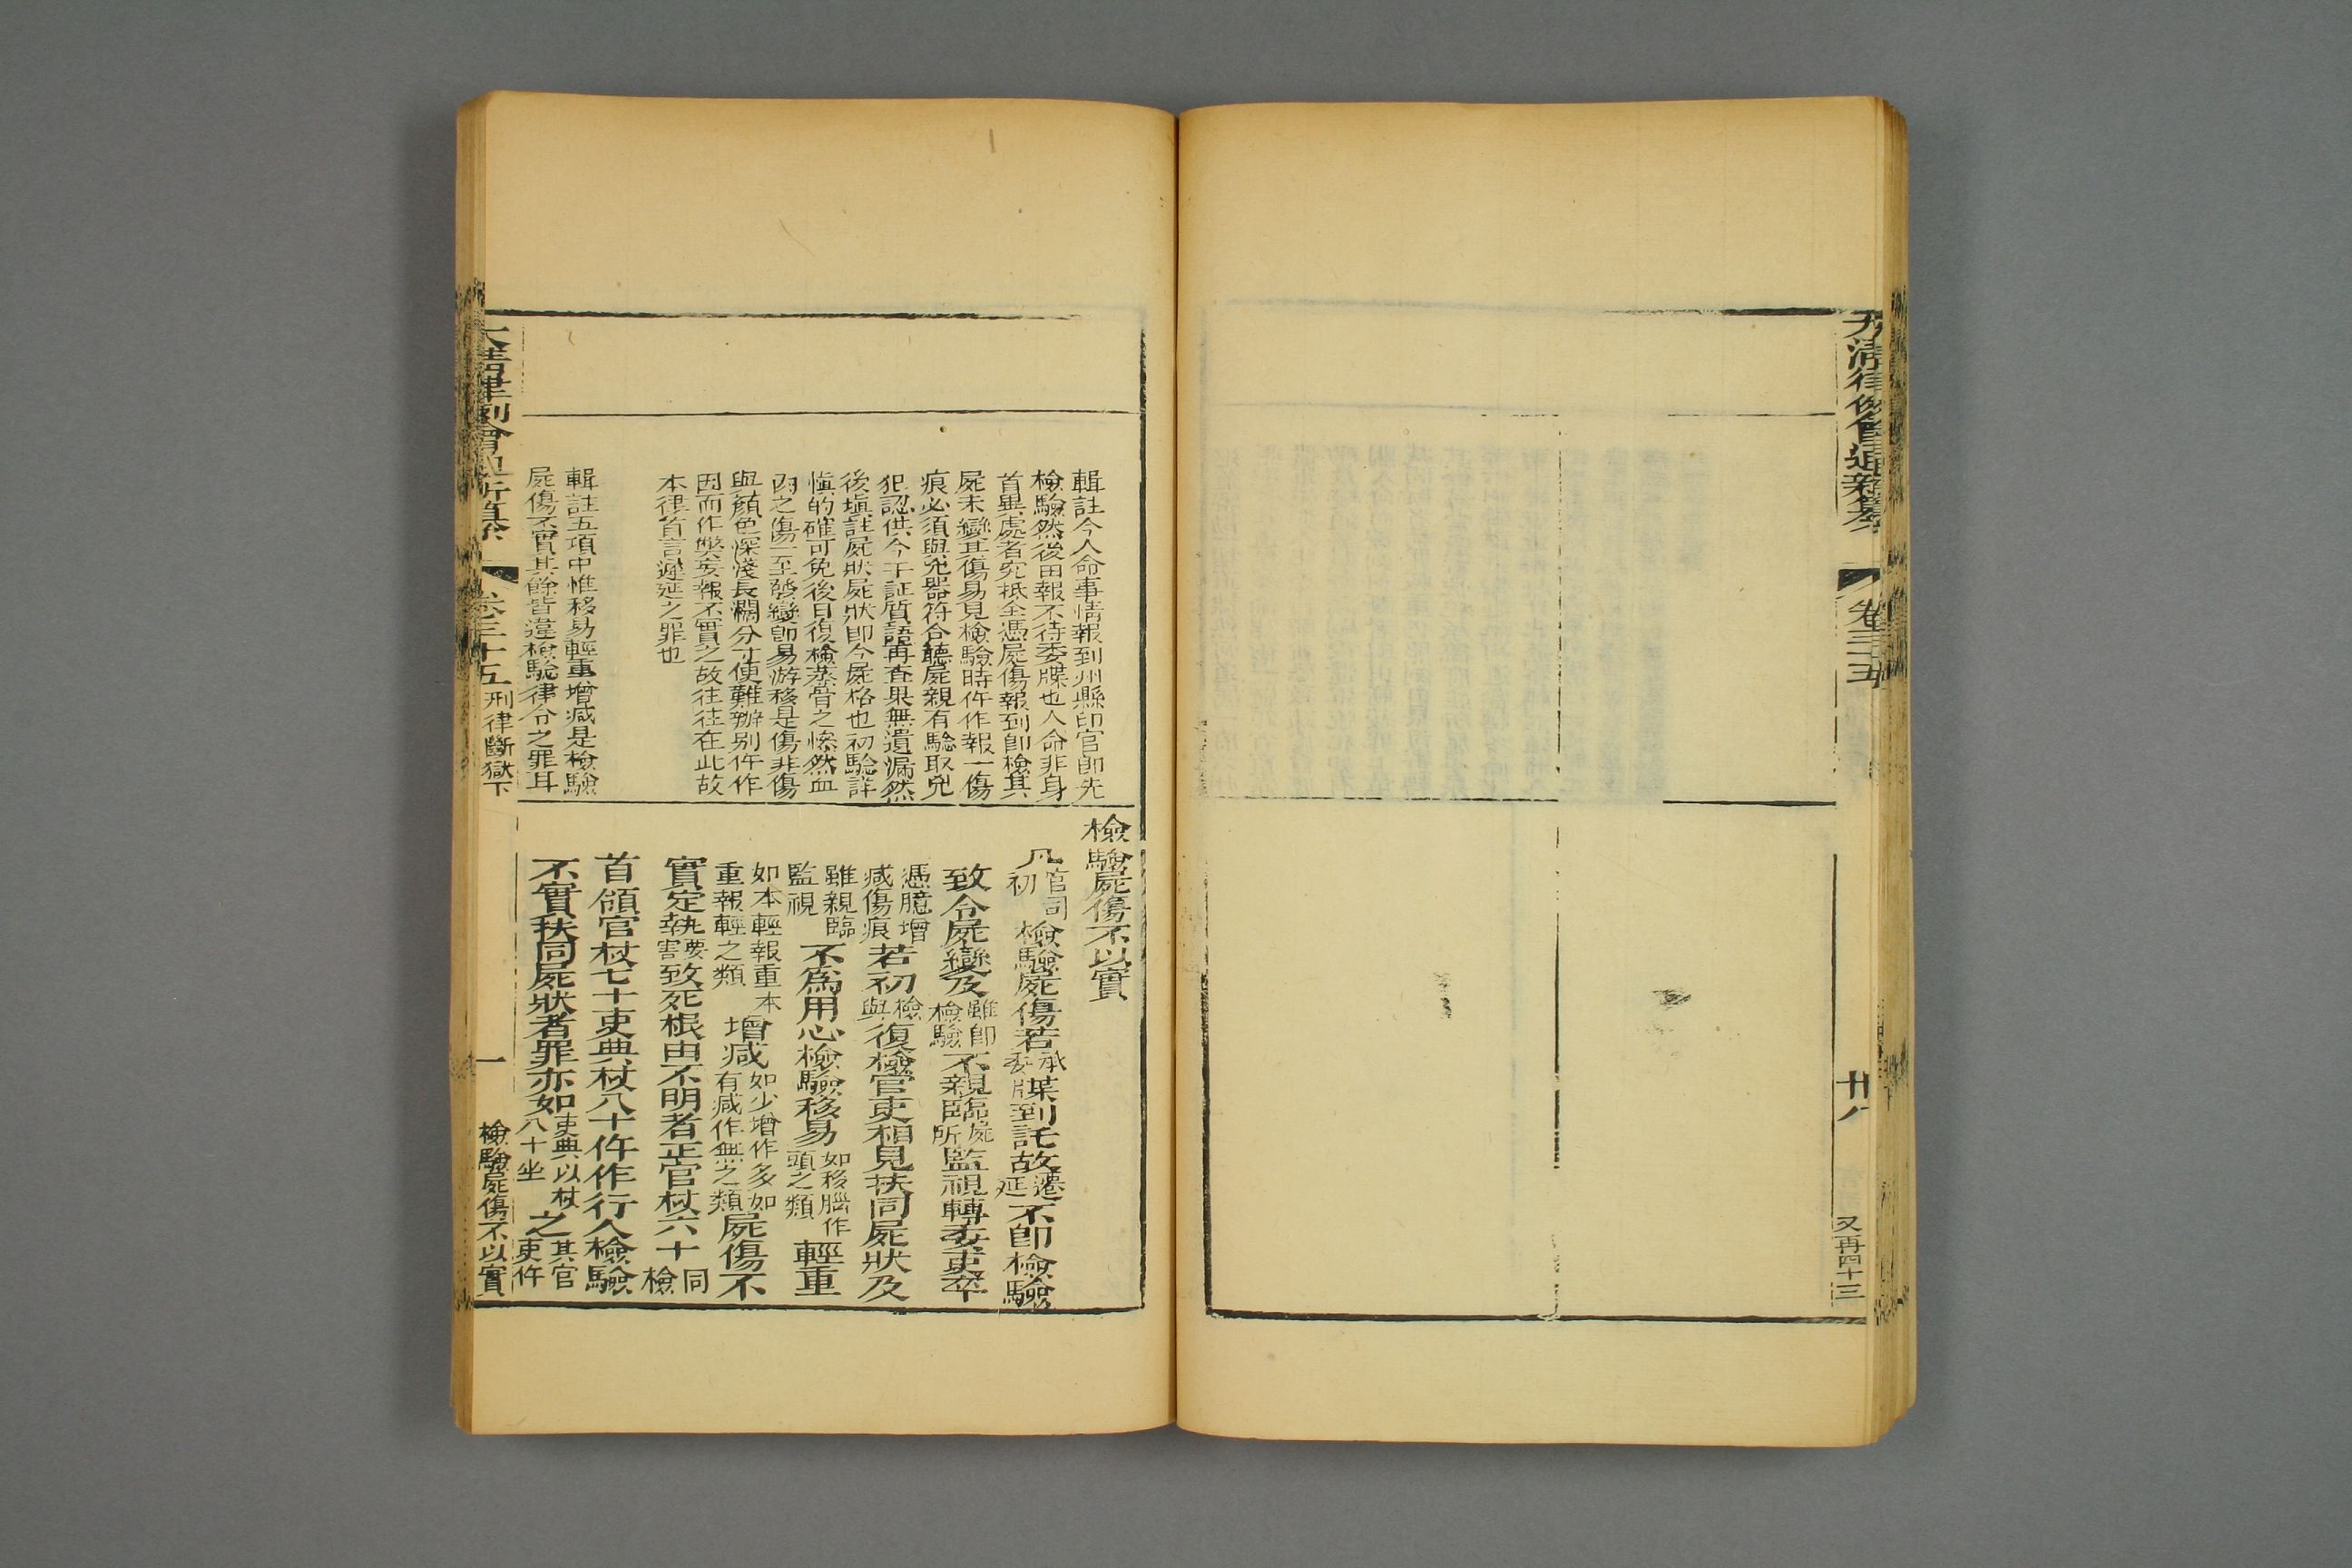 大清律例會通新纂
卷三十五
廿八
又再四十三
輯註今人命事情報到州縣印官即先
檢驗然後申報不待委牒也人命非身
首異處者究抵全憑屍傷報到即檢其
屍未變其傷易見檢驗時仵作報一傷
痕必須與兇器符合聽屍親有驗取兇
犯認供令干証質語再查果無遺漏然
後塡註屍狀屍狀即今屍格也初驗詳
愼的確可免後日復檢蒸骨之慘然血
肉之傷一至發變即易游移是傷非傷
與顏色深淺長濶分寸便難辦别仵作
因而作弊妄報不實之故往往在此故
本律首言遲延之罪也
輯註五項中惟移易輕重增减是檢驗
屍傷不實其餘皆違檢驗律令之罪耳
檢驗屍傷不以實
凡官司初檢驗屍傷若承委牒到託故遷延不卽檢驗
致令屍變及雖卽檢驗不親臨屍所監視轉委吏卒
憑臆增减傷痕若初檢與復檢官吏相見扶同屍狀及
雖親臨監視不爲用心檢驗移易如移腦作頭之類輕重
如本輕報重本重報輕之類增减如少增作多如有减作無之類屍傷不
實定執要害致死根由不明者正官杖六十同檢
首領官杖七十吏典杖八十仵作行人檢驗
不實扶同屍狀者罪亦如吏典以杖八十坐之其官吏仵
大清律例會通新纂
卷三十五
刑律斷獄下
一
檢驗屍傷不以實